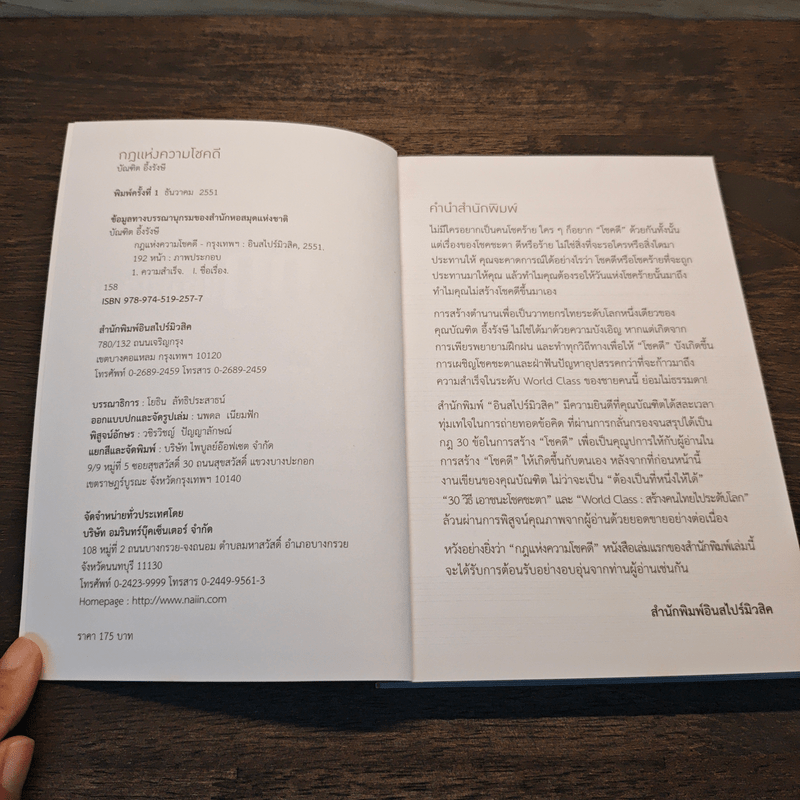 กฎแห่งความโชคดี
บัณฑิต อึ้งรังษี
พิมพ์ครั้งที่ 1 ธันวาคม 2551
ข้อมูลทางบรรณานุกรมของสำนักหอสมุดแห่งชาติ
บัณฑิต อึ้งรังษี
กฎแห่งความโชคดี - กรุงเทพฯ : อินสไปร์มิวสิค, 2551.
192 หน้า : ภาพประกอบ
1. ความสำเร็จ. I. ชื่อเรื่อง.
158
ISBN 978-974-519-257-7
สำนักพิมพ์อินสไปร์มิวสิค
780/132 ถนนเจริญกรุง
เขตบางคอแหลม กรุงเทพฯ 10120
โทรศัพท์ 0-2689-2459 โทรสาร 0-2689-2459
บรรณาธิการ : โยธิน ลัทธิประสาธน์
ออกแบบปกและจัดรูปเล่ม : นพดล เนียมฟัก
พิสูจน์อักษร : วชิรวิชญ์ ปัญญาลักษณ์
แยกสีและจัดพิมพ์ : บริษัท ไพบูลย์อ๊อฟเซต จำกัด
9/9 หมู่ที่ 5 ซอยสุขสวัสดิ์ 30 ถนนสุขสวัสดิ์ แขวงบางปะกอก
เขตราษฎร์บูรณะ จังหวัดกรุงเทพฯ 10140
จัดจำหน่ายทั่วประเทศโดย
บริษัท อมรินทร์บุ๊คเซ็นเตอร์ จำกัด
108 หมู่ที่ 2 ถนนบางกรวย-จงถนอม ตำบลมหาสวัสดิ์ อำเภอบางกรวย
จังหวัดนนทบุรี 11130
โทรศัพท์ 0-2423-9999 โทรสาร 0-2449-9561-3
Homepage : http://www.naiin.com
ราคา 175 บาท
คำนำสำนักพิมพ์
ไม่มีใครอยากเป็นคนโชคร้าย ใคร ๆ ก็อยาก "โชคดี" ด้วยกันทั้งนั้น
แต่เรื่องของโชคชะตา ดีหรือร้าย ไม่ใช่สิ่งที่จะรอใครหรือสิ่งใดมา
ประทานให้ คุณจะคาดการณ์ได้อย่างไรว่า โชคดีหรือโชคร้ายที่จะถูก
ประทานมาให้คุณ แล้วทำไมคุณต้องรอให้วันแห่งโชคร้ายนั้นมาถึง
ทำไมคุณไม่สร้างโชคดีขึ้นมาเอง
การสร้างตำนานเพื่อเป็นวาทยกรไทยระดับโลกหนึ่งเดียวของ
คุณบัณฑิต อึ้งรังษี ไม่ใช่ได้มาด้วยความบังเอิญ หากแต่เกิดจาก
การเพียรพยายามฝึกฝน และทำทุกวิถีทางเพื่อให้ "โชคดี" บังเกิดขึ้น
การเผชิญโชคชะตาและฝ่าฟันปัญหาอุปสรรคกว่าที่จะก้าวมาถึง
ความสำเร็จในระดับ World Class ของชายคนนี้ ย่อมไม่ธรรมดา!
สำนักพิมพ์ "อินสไปร์มิวสิค" มีความยินดีที่คุณบัณฑิตได้สละเวลา
ทุ่มเทใจในการถ่ายทอดข้อคิด ที่ผ่านการกลั่นกรองจนสรุปได้เป็น
กฎ 30 ข้อในการสร้าง "โชคดี" เพื่อเป็นคุณูปการให้กับผู้อ่านใน
การสร้าง "โชคดี" ให้เกิดขึ้นกับตนเอง หลังจากที่ก่อนหน้านี้
งานเขียนของคุณบัณฑิต ไม่ว่าจะเป็น "ต้องเป็นที่หนึ่งให้ได้"
"30 วิธี เอาชนะโชคชะตา" และ "World Class : สร้างคนไทยไประดับโลก"
ล้วนผ่านการพิสูจน์คุณภาพจากผู้อ่านด้วยยอดขายอย่างต่อเนื่อง
หวังอย่างยิ่งว่า "กฎแห่งความโชคดี" หนังสือเล่มแรกของสำนักพิมพ์เล่มนี้
จะได้รับการต้อนรับอย่างอบอุ่นจากท่านผู้อ่านเช่นกัน
สำนักพิมพ์อินสไปร์มิวสิค